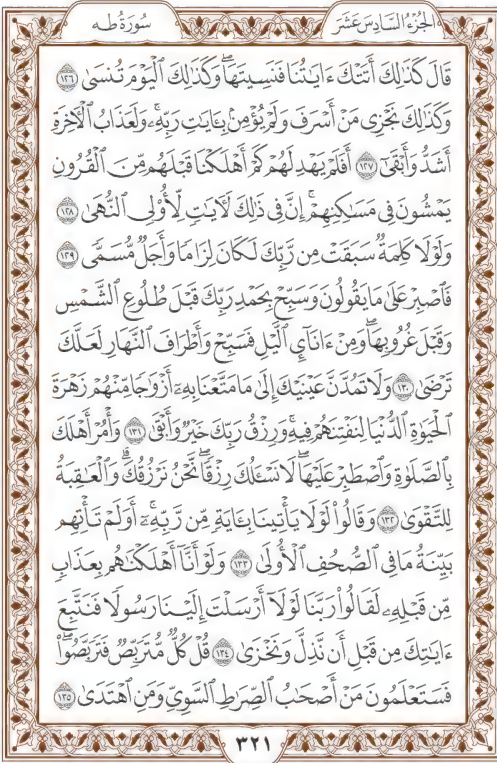 الجُزْءُ السَّادِسَ عَشَرَ
سُورَةُ طه
قَالَ كَذَٰلِكَ أَتَتْكَ ءَايَٰتُنَا فَنَسِيتَهَا ۖ وَكَذَٰلِكَ ٱلْيَوْمَ تُنسَىٰ ١٢٦
وَكَذَٰلِكَ نَجْزِى مَنْ أَسْرَفَ وَلَمْ يُؤْمِنۢ بِـَٔايَٰتِ رَبِّهِۦ ۚ وَلَعَذَابُ ٱلْءَاخِرَةِ
أَشَدُّ وَأَبْقَىٰٓ ١٢٧ أَفَلَمْ يَهْدِ لَهُمْ كَمْ أَهْلَكْنَا قَبْلَهُم مِّنَ ٱلْقُرُونِ
يَمْشُونَ فِى مَسَٰكِنِهِمْ ۗ إِنَّ فِى ذَٰلِكَ لَءَايَٰتٍ لِّأُو۟لِى ٱلنُّهَىٰ ١٢٨
وَلَوْلَا كَلِمَةٌ سَبَقَتْ مِن رَّبِّكَ لَكَانَ لِزَامًا وَأَجَلٌ مُّسَمًّى ١٢٩
فَٱصْبِرْ عَلَىٰ مَا يَقُولُونَ وَسَبِّحْ بِحَمْدِ رَبِّكَ قَبْلَ طُلُوعِ ٱلشَّمْسِ
وَقَبْلَ غُرُوبِهَا ۖ وَمِنْ ءَانَآئِ ٱلَّيْلِ فَسَبِّحْ وَأَطْرَافَ ٱلنَّهَارِ لَعَلَّكَ
تَرْضَىٰ ١٣٠ وَلَا تَمُدَّنَّ عَيْنَيْكَ إِلَىٰ مَا مَتَّعْنَا بِهِۦٓ أَزْوَٰجًا مِّنْهُمْ زَهْرَةَ
ٱلْحَيَوٰةِ ٱلدُّنْيَا لِنَفْتِنَهُمْ فِيهِ ۚ وَرِزْقُ رَبِّكَ خَيْرٌ وَأَبْقَىٰ ١٣١ وَأْمُرْ أَهْلَكَ
بِٱلصَّلَوٰةِ وَٱصْطَبِرْ عَلَيْهَا ۖ لَا نَسْـَٔلُكَ رِزْقًا ۖ نَّحْنُ نَرْزُقُكَ ۗ وَٱلْعَٰقِبَةُ
لِلتَّقْوَىٰ ١٣٢ وَقَالُوا۟ لَوْلَا يَأْتِينَا بِـَٔايَةٍ مِّن رَّبِّهِۦٓ ۚ أَوَلَمْ تَأْتِهِم
بَيِّنَةُ مَا فِى ٱلصُّحُفِ ٱلْأُولَىٰ ١٣٣ وَلَوْ أَنَّآ أَهْلَكْنَٰهُم بِعَذَابٍ
مِّن قَبْلِهِۦ لَقَالُوا۟ رَبَّنَا لَوْلَآ أَرْسَلْتَ إِلَيْنَا رَسُولًا فَنَتَّبِعَ
ءَايَٰتِكَ مِن قَبْلِ أَن نَّذِلَّ وَنَخْزَىٰ ١٣٤ قُلْ كُلٌّ مُّتَرَبِّصٌ فَتَرَبَّصُوا۟ ۖ
فَسَتَعْلَمُونَ مَنْ أَصْحَٰبُ ٱلصِّرَٰطِ ٱلسَّوِىِّ وَمَنِ ٱهْتَدَىٰ ١٣٥
٣٢١